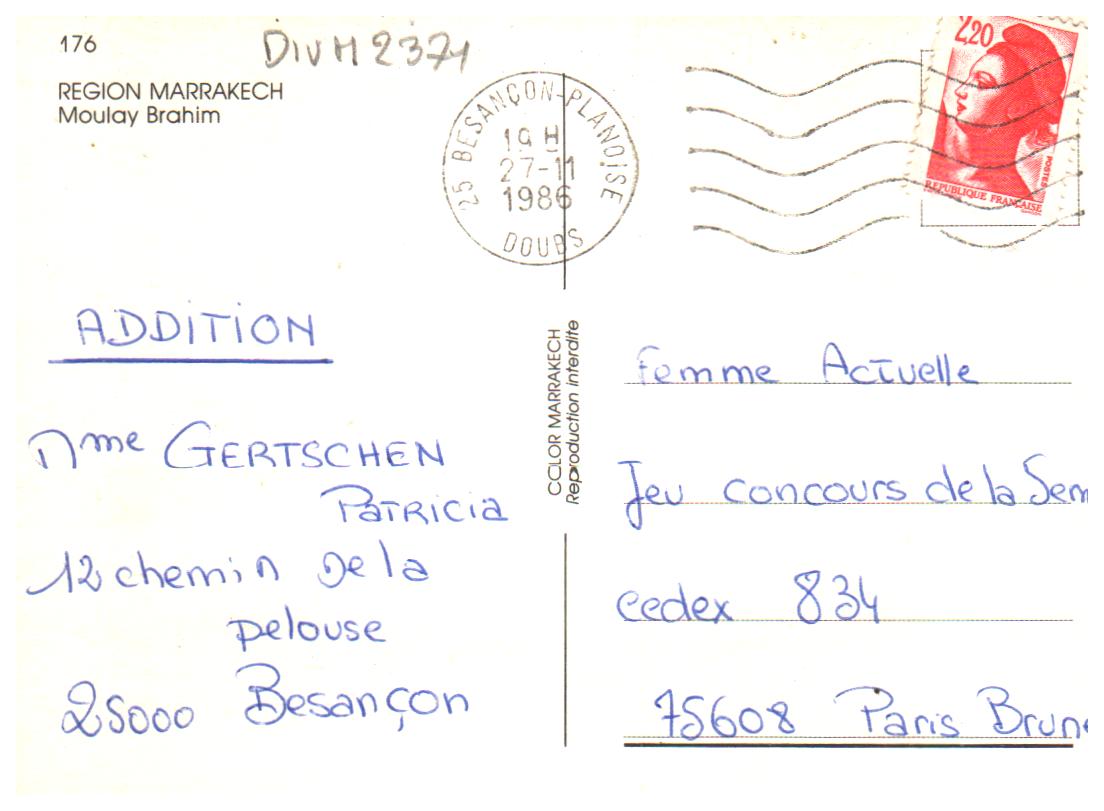 176
DIVM2371
REGION MARRAKECH
Moulay Brahim
25 BESANÇON-PLANOISE
19 H
27-11
1986
DOUBS
2,20
POSTES
REPUBLIQUE FRANÇAISE
ADDITION
Mme GERTSCHEN
PATRICIA
12 chemin de la
pelouse
25000 Besançon
COLOR MARRAKECH
Reproduction interdite
Femme Actuelle
Jeu concours de la Sem
cedex 834
75608 Paris Brune